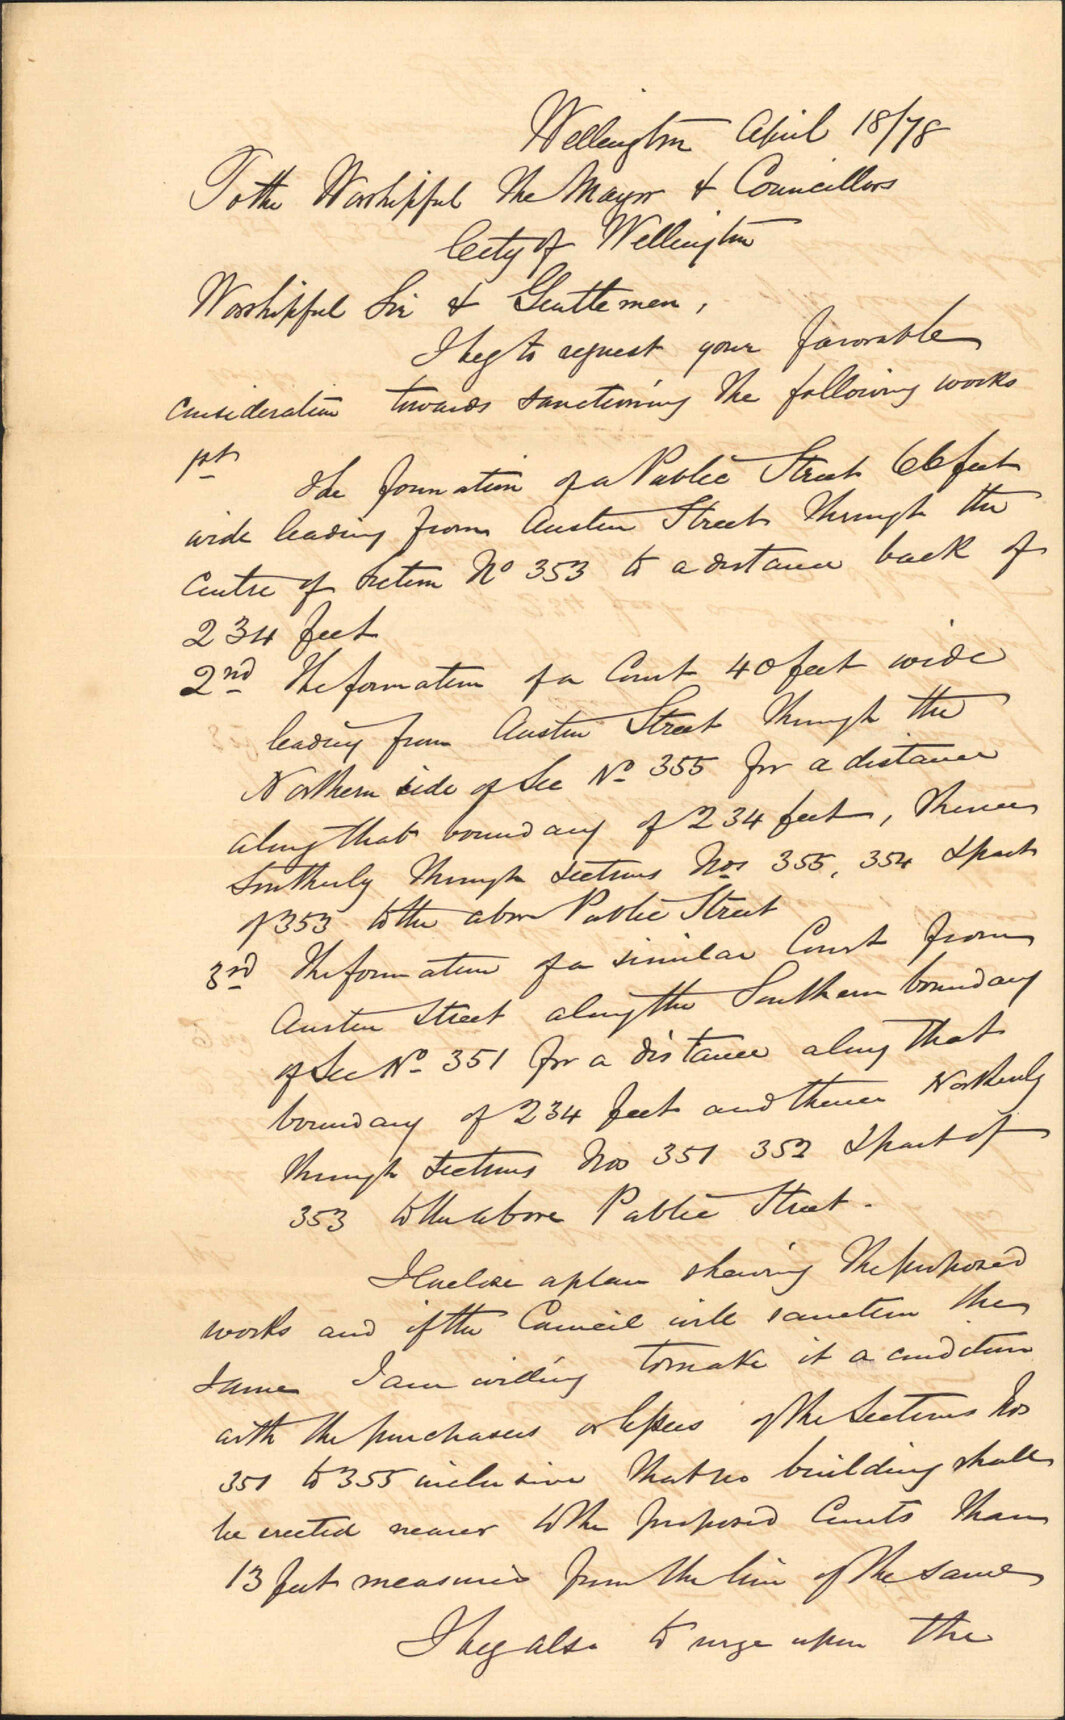 Wellington April 18/78
To the Worshipful The Mayor & Councillors
City of Wellington
Worshipful Sir & Gentlemen,
I beg to request your favorable
consideration towards sanctioning the following works
1st
The formation of a Public Street 66 feet
wide leading from Austin Street through the
centre of Section No 353 to a distance back of
234 feet
2nd The formation of a Court 40 feet wide
leading from Austin Street through the
Northern side of Sec No 355 for a distance
along that boundary of 234 feet, thence
Southerly through sections Nos 355, 354 & part
of 353 to the above Public Street
3rd The formation of a similar Court from
Austin Street along the Southern boundary
of Sec No 351 for a distance along that
boundary of 234 feet and thence Northerly
through sections Nos 351 352 & part of
353 to the above Public Street.
I enclose a plan shewing the proposed
works and if the Council will sanction the
same I am willing to make it a condition
with the purchasers or lessees of the Sections Nos
351 to 355 inclusive that no building shall
be erected nearer to the proposed Courts than
13 feet measured from the line of the same
I beg also to urge upon the